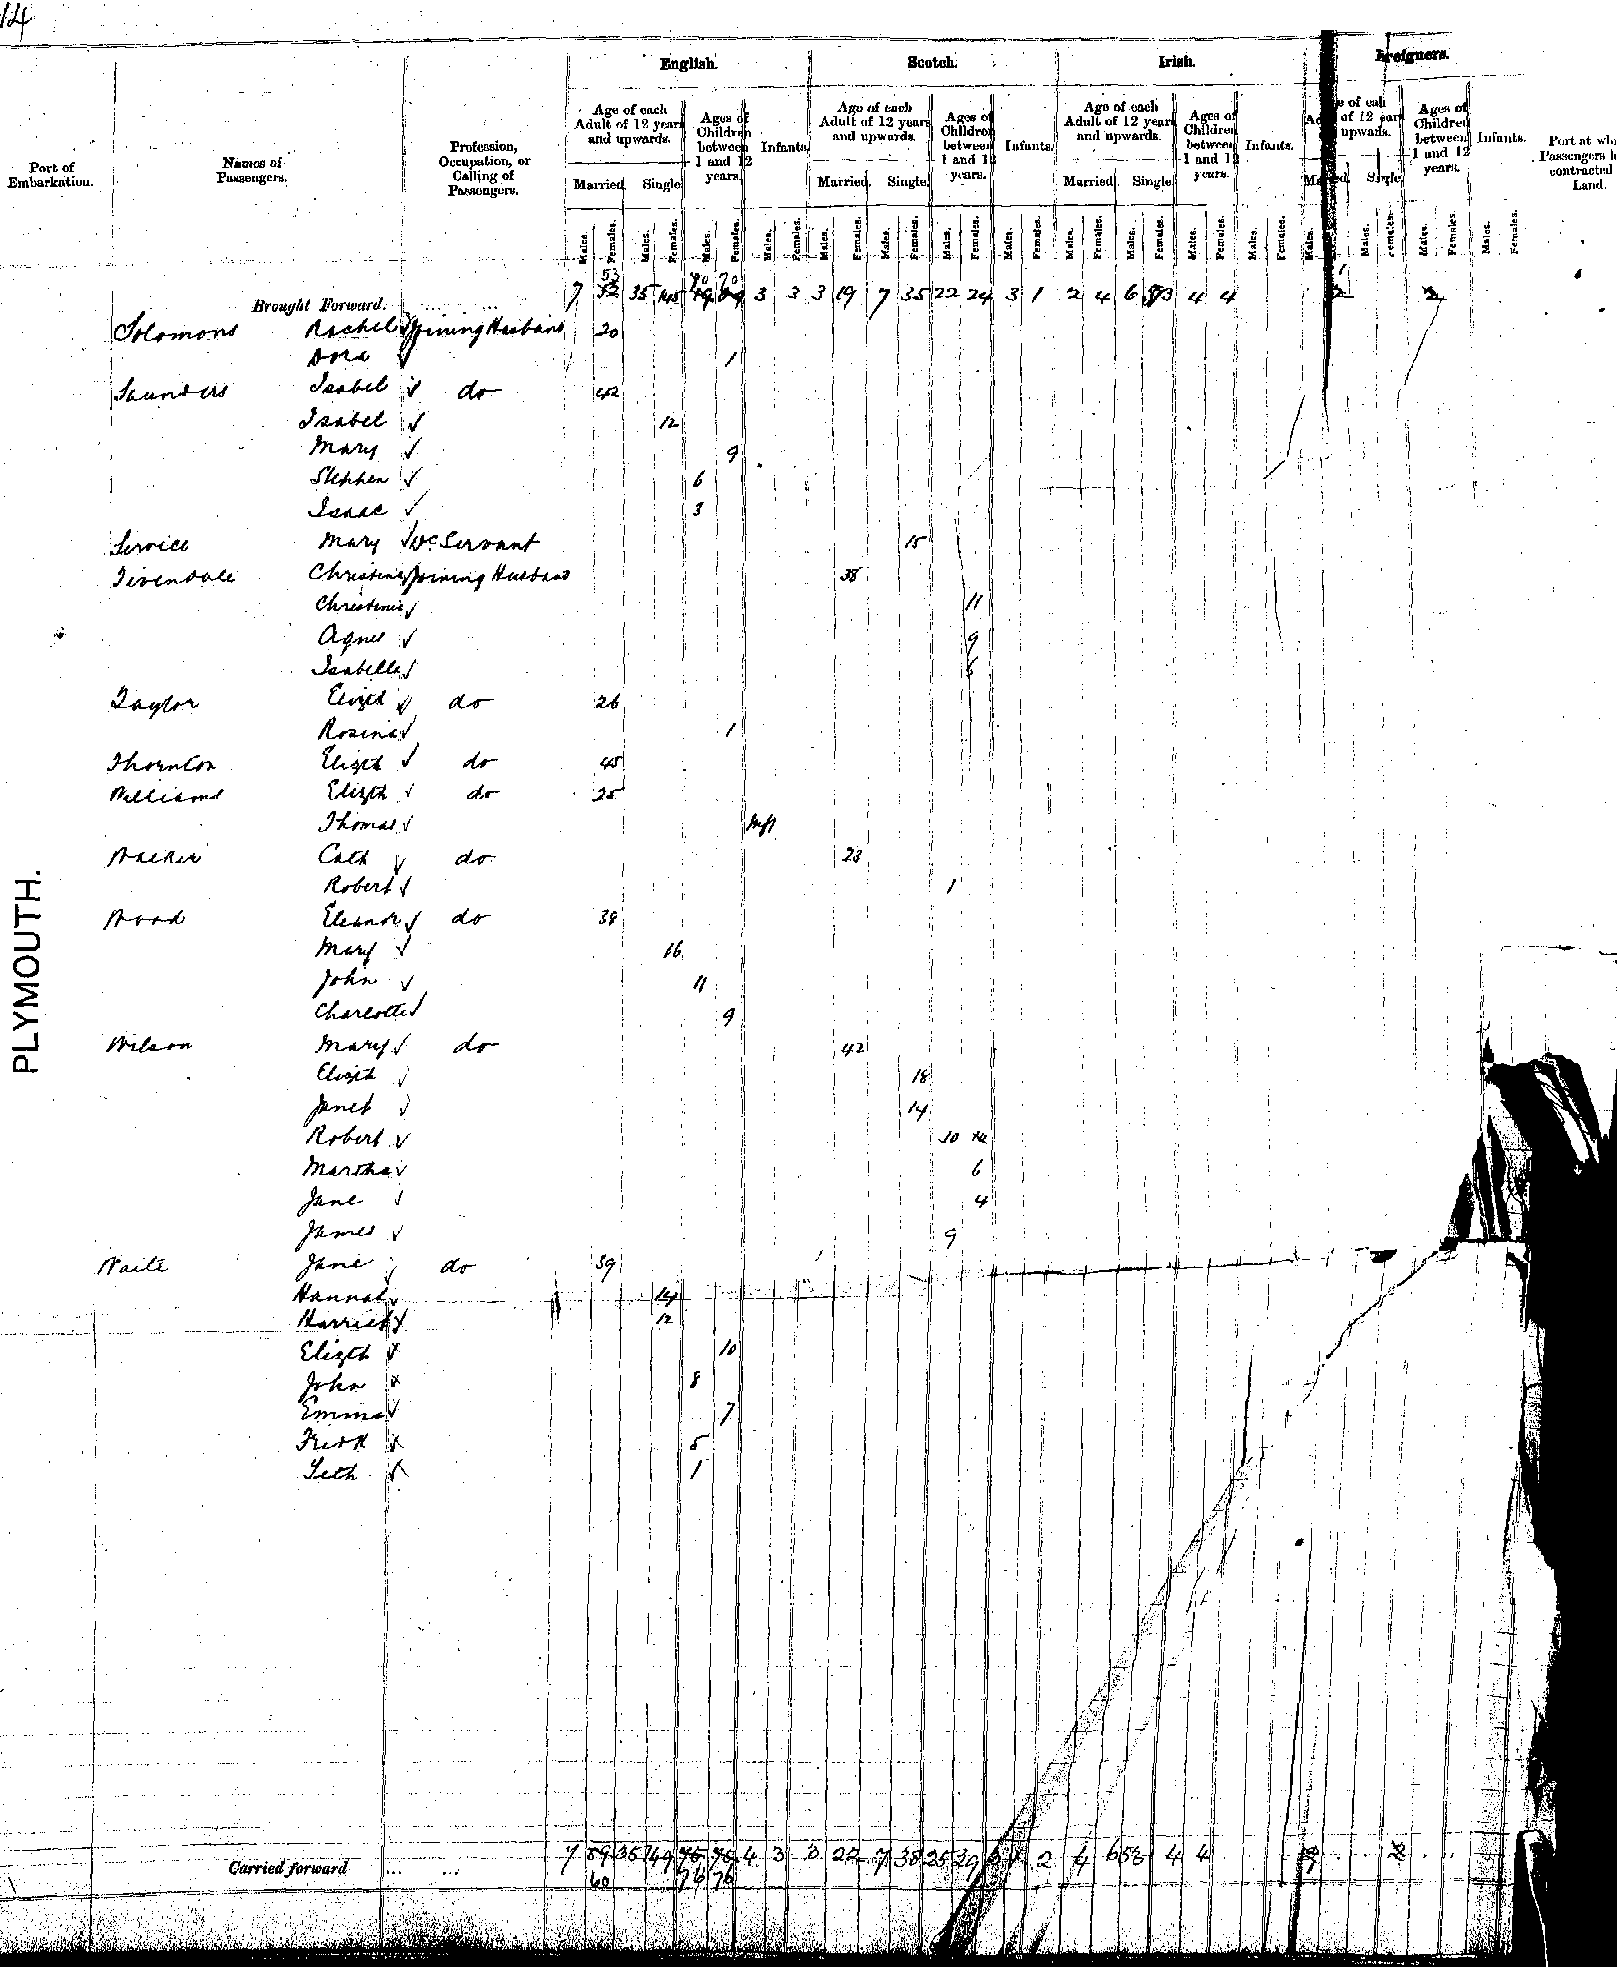 14
English. Scotch. Irish. Foreigners.
Port of Embarkation. Names of Passengers. Profession, Occupation, or Calling of Passengers. Age of each Adult of 12 years and upwards. Ages of Children between 1 and 12 years. Infants. Age of each Adult of 12 years and upwards. Ages of Children between 1 and 12 years. Infants. Age of each Adult of 12 years and upwards. Ages of Children between 1 and 12 years. Infants. Ages of Children between 1 and 12 years. Infants. Port at wh Passengers h contracted Land.
Married. Single. Married. Single. Married. Single. Single.
Males. Females. Males. Females. Males. Females. Males. Females. Males. Females. Males. Females. Males. Females. Males. Females. Males. Females. Males. Females. Males. Females. Males. Females. Males. Males. Females. Males. Females. Males. Females.
53 70 70
Brought Forward. ... ... 7 52 35 145 3 3 3 19 7 35 22 24 3 1 2 4 6 53 4 4 2 2
Solomons Rachel Joining Husband 20
Dora 1
Saunders Isabel do 42
Isabel 12
Mary 9
Stephen 6
Isaac 3
Service Mary Do. Servant 15
Tivendale Christina Joining Husband 38
Christina 11
Agnes 9
Isabella 6
Taylor Elizth do 26
Rosina 1
Thornton Elizth do 45
Williams Elizth do 25
Thomas Inft
Walker Cath do 23
Robert 1
Wood Eleanor do 39
Mary 16
John 11
Charlotte 9
Wilson Mary do 42
Elizth 18
Janet 14
Robert 10
Martha 6
Jane 4
James 9
Waite Jane do 39
Hannah 14
Harriet 12
Elizth 10
John 8
Emma 7
Fredk 5
Seth 1
PLYMOUTH.
Carried forward ... ... 7 59 35 149 75 75 4 3 3 22 7 38 25 29 2 4 6 53 4 4 2
60 76 76